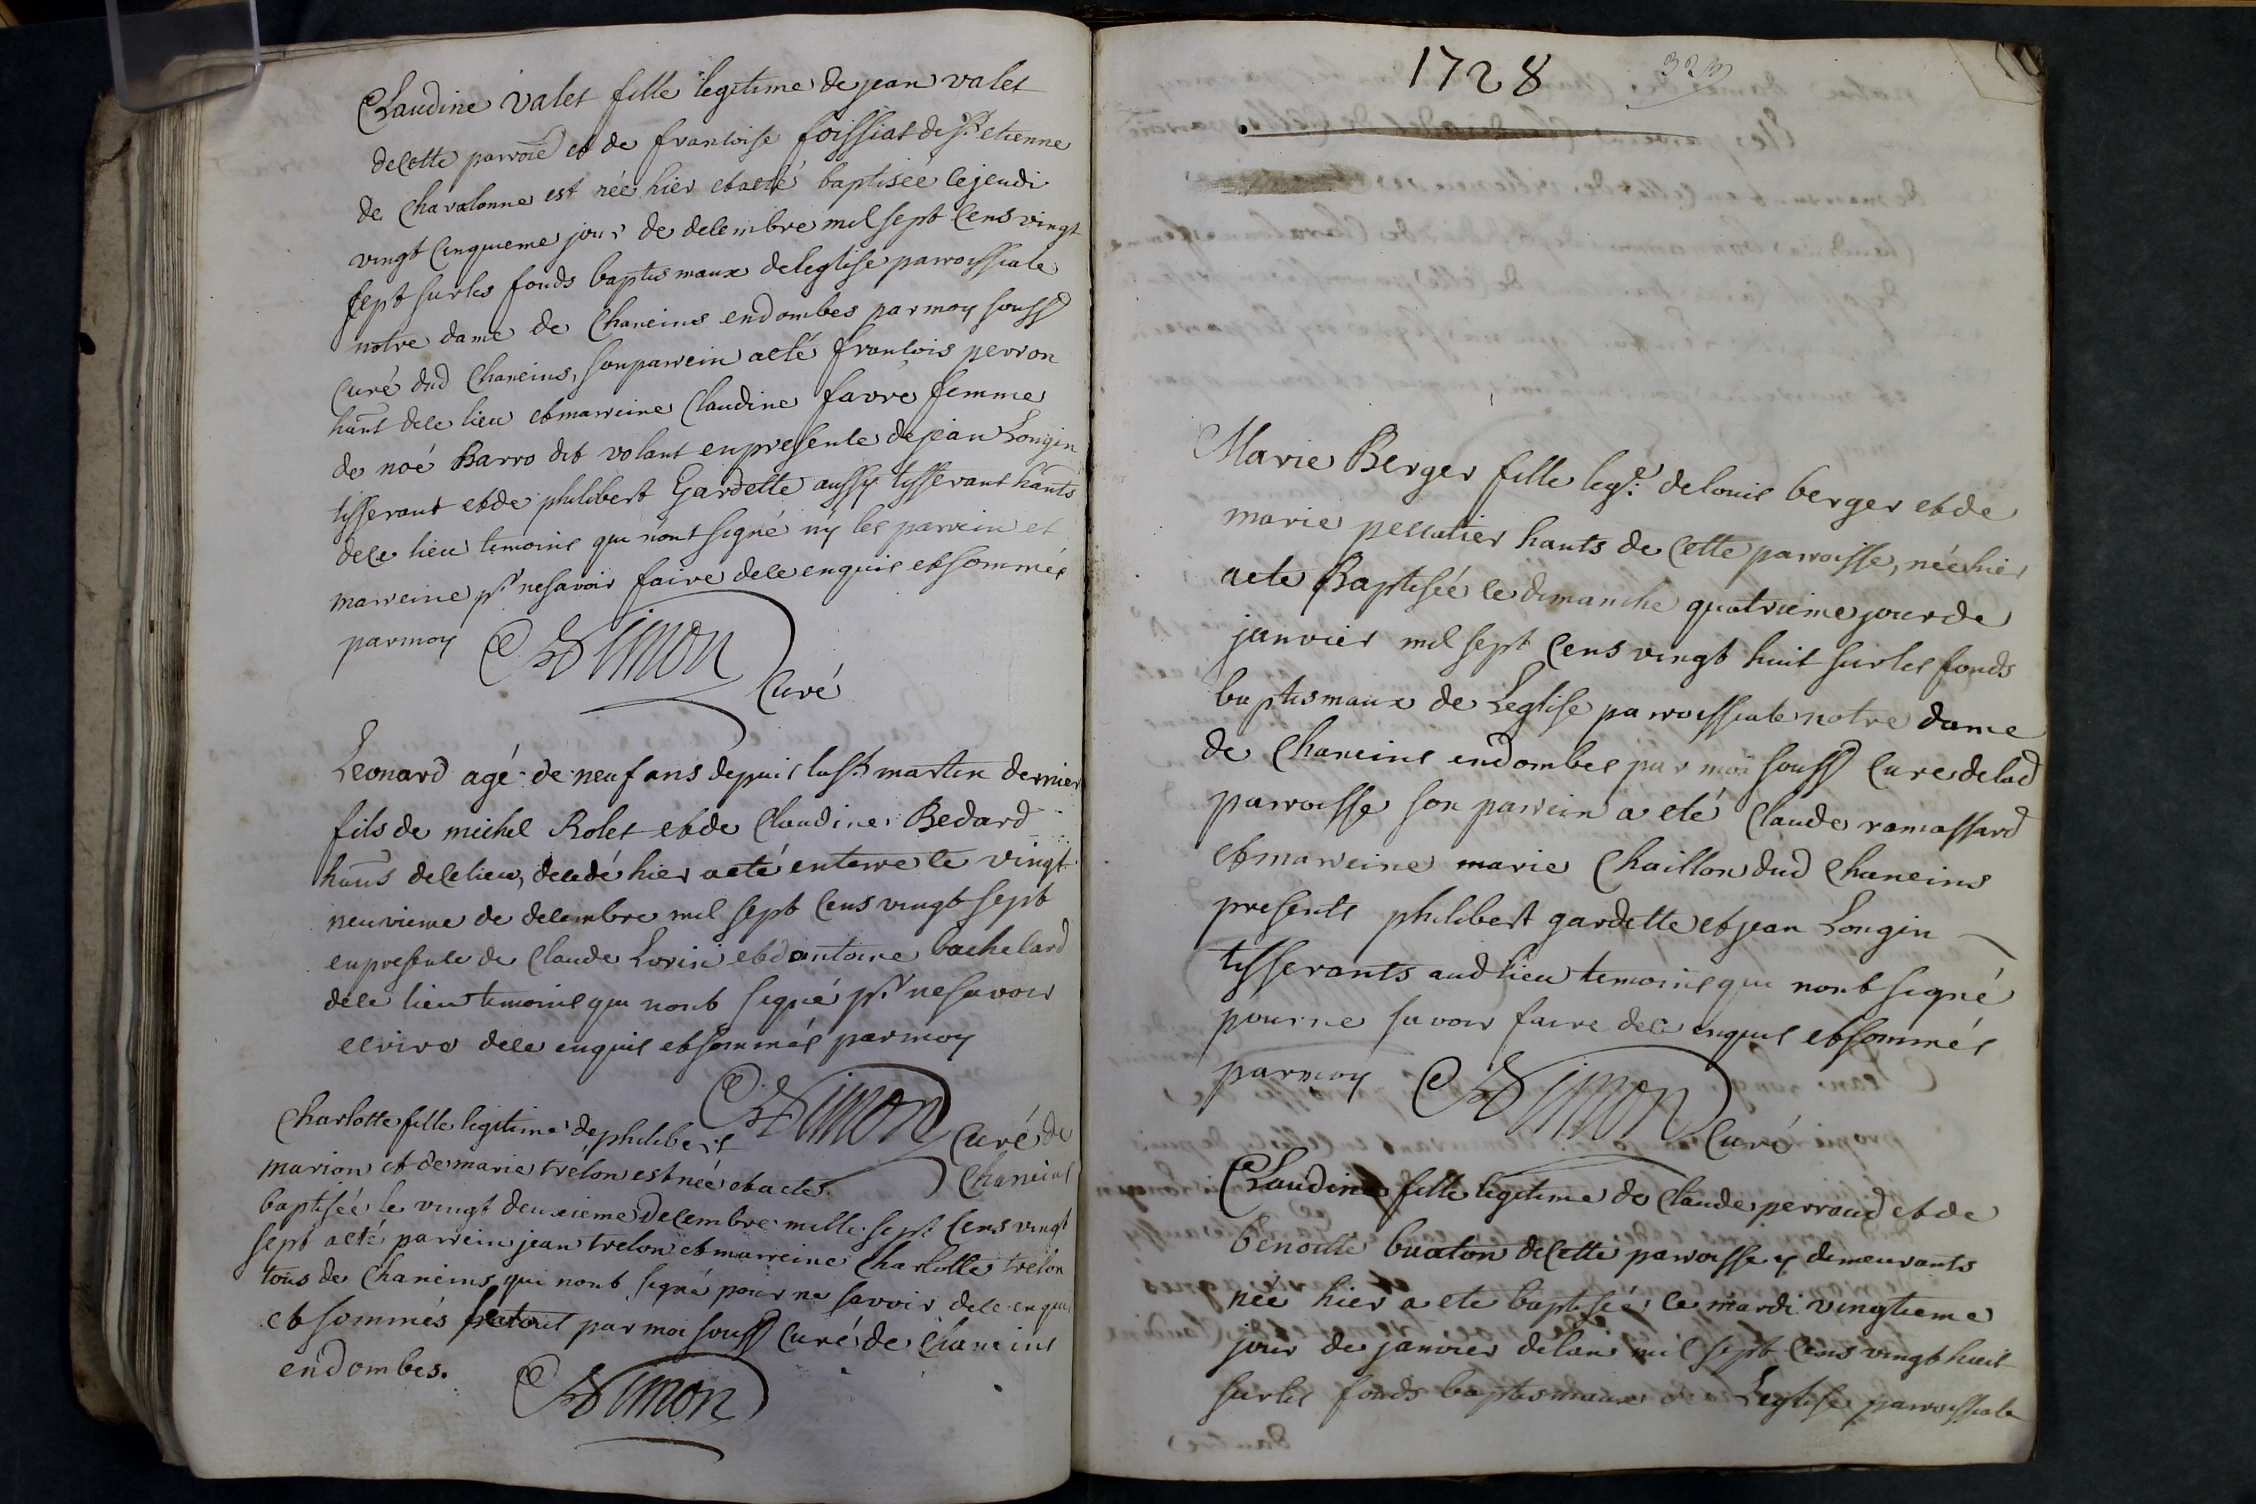 Claudine valet fille legitime de jean valet
de cette parroië et de francoise foissiat de st etienne
de Chavalonne est née hier et a eté baptisée le jeudi
vingt cinquieme jour de decembre mil sept cens vingt
sept sur les fonds baptismaux de leglise parroissiale
notre dame de Chaneins en dombes par moy souss
curé dud Chaneins, son parrein a eté francois perron
hant de ce lieu et marreine Claudine favre femme
de noé Barro dit volant en presence de jean Longin
tisserant et de philibert Gardette aussy tisserant hants
de ce lieu temoins qui n'ont signé ny les parrein et
marreine pr ne savoir faire de ce enquis et sommés
par moy Simon
Curé
Leonard agé de neuf ans depuis la st martin dernier
fils de michel Rolet et de Claudine Bedard
hants de ce lieu, decedé hier a eté enterre le vingt
neuvieme de decembre mil sept cens vingt sept
en presence de Claude Lorin et dantoine bachelard
de ce lieu temoins qui nont signé pr ne savoir
ecrire de ce enquis et sommés par moy
Simon Curé de
Chaneins
Charlotte fille legitime de philibert
marion et de marie trelon est née et a eté
baptisée le vingt deuxieme decembre mille sept cens vingt
sept a eté parrein jean trelon et marreine Charlotte trelon
tous de Chaneins qui nont signé pour ne savoir de ce enquis
et sommés le tout par moi souss curé de Chaneins
en dombes.
Simon
1728
323
Marie Berger fille lege de louis berger et de
marie pellatier hants de cette parroisse, née hier
a ete Baptisée le dimanche quatrieme jour de
janvier mil sept cens vingt huit sur les fonds
baptismaux de Leglise parroissiale notre dame
de Chaneins en dombes par moi souss curé de lad
parroisse son parrein a eté Claude ramassard
et marreine marie Chaillon dud Chaneins
presents philibert gardette et jean Longin
tisserants aud lieu temoins qui nont signé
pour ne savoir faire de ce enquis et sommés
par moy Simon
Curé
Claudine fille legitime de Claude perraud et de
benoitte buaton de cette parroisse y demeurants
née hier a ete baptisée le mardi vingtieme
jour de janvier de lan mil sept cens vingt huit
sur les fonds baptismaux de Leglise parroissiale